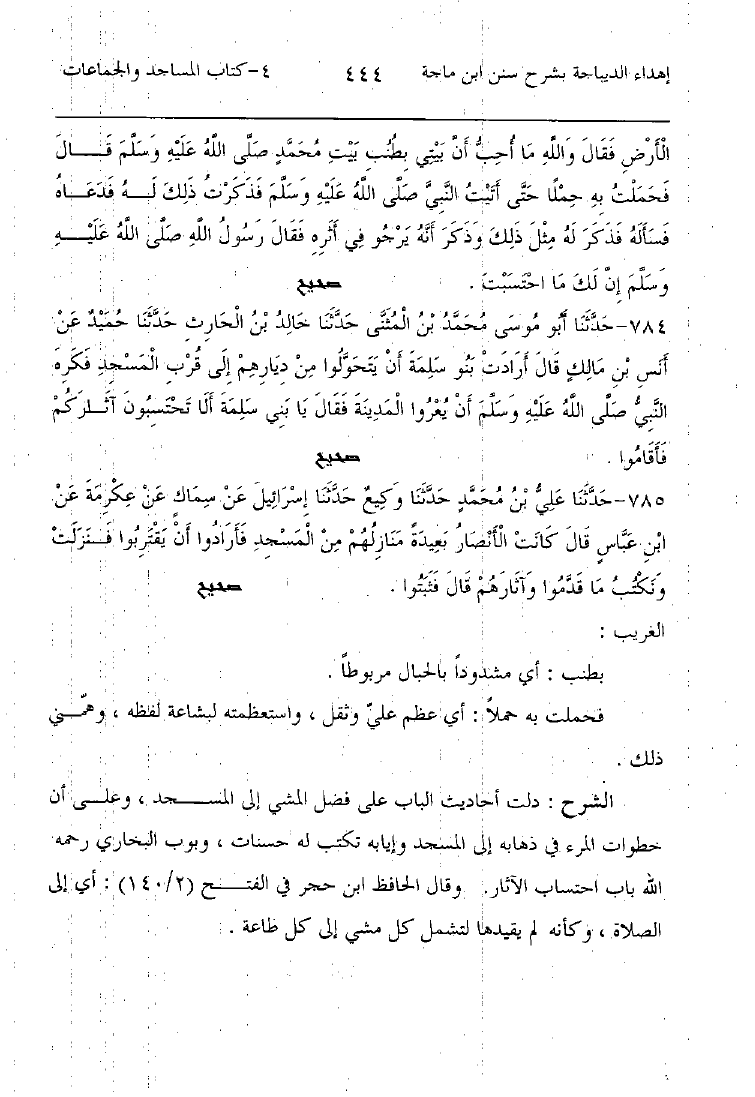 إهداء الديباجة بشرح سنن ابن ماجة ٤٤٤ ٤-كتاب المساجد والجماعات
الْأَرْضِ فَقَالَ وَاللَّهِ مَا أُحِبُّ أَنَّ بَيْتِي بِطُنُبِ بَيْتِ مُحَمَّدٍ صَلَّى اللَّهُ عَلَيْهِ وَسَلَّمَ قَالَ
فَحَمَلْتُ بِهِ حِمْلًا حَتَّى أَتَيْتُ النَّبِيَّ صَلَّى اللَّهُ عَلَيْهِ وَسَلَّمَ فَذَكَرْتُ ذَلِكَ لَهُ فَدَعَاهُ
فَسَأَلَهُ فَذَكَرَ لَهُ مِثْلَ ذَلِكَ وَذَكَرَ أَنَّهُ يَرْجُو فِي أَثَرِهِ فَقَالَ رَسُولُ اللَّهِ صَلَّى اللَّهُ عَلَيْهِ
وَسَلَّمَ إِنَّ لَكَ مَا احْتَسَبْتَ . صحيح
٧٨٤-حَدَّثَنَا أَبُو مُوسَى مُحَمَّدُ بْنُ الْمُثَنَّى حَدَّثَنَا خَالِدُ بْنُ الْحَارِثِ حَدَّثَنَا حُمَيْدٌ عَنْ
أَنَسِ بْنِ مَالِكٍ قَالَ أَرَادَتْ بَنُو سَلِمَةَ أَنْ يَتَحَوَّلُوا مِنْ دِيَارِهِمْ إِلَى قُرْبِ الْمَسْجِدِ فَكَرِهَ
النَّبِيُّ صَلَّى اللَّهُ عَلَيْهِ وَسَلَّمَ أَنْ يُعْرُوا الْمَدِينَةَ فَقَالَ يَا بَنِي سَلِمَةَ أَلَا تَحْتَسِبُونَ آثَارَكُمْ
فَأَقَامُوا . صحيح
٧٨٥-حَدَّثَنَا عَلِيُّ بْنُ مُحَمَّدٍ حَدَّثَنَا وَكِيعٌ حَدَّثَنَا إِسْرَائِيلُ عَنْ سِمَاكٍ عَنْ عِكْرِمَةَ عَنْ
ابْنِ عَبَّاسٍ قَالَ كَانَتْ الْأَنْصَارُ بَعِيدَةً مَنَازِلُهُمْ مِنْ الْمَسْجِدِ فَأَرَادُوا أَنْ يَقْتَرِبُوا فَنَزَلَتْ
وَنَكْتُبُ مَا قَدَّمُوا وَآثَارَهُمْ قَالَ فَثَبَتُوا . صحيح
الغريب :
بطنب : أي مشدوداً بالحبال مربوطاً .
فحملت به حملاً : أي عظم عليّ وثقل ، واستعظمته لبشاعة لفظه ، وهمّني
ذلك .
الشرح : دلت أحاديث الباب على فضل المشي إلى المسجد ، وعلى أن
خطوات المرء في ذهابه إلى المسجد وإيابه تكتب له حسنات ، وبوب البخاري رحمه
الله باب احتساب الآثار. وقال الحافظ ابن حجر في الفتح (١٤٠/٢) : أي إلى
الصلاة ، وكأنه لم يقيدها لتشمل كل مشي إلى كل طاعة .